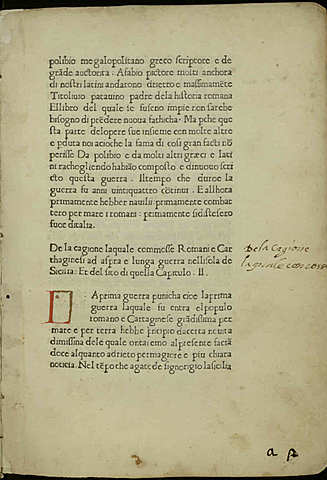 polibio megalopolitano greco scriptore e de
grāde auctorita . A fabio pictore molti anchora
di nostri latini andarono drieto e massimamēte
Titoliuio patauino padre dela historia romana
El libro del quale se fuseno impie non sarebe
bisogno di prēdere noeua fathicha . Ma pche que
sta parte delopere sue insieme con molte altre
e pduta noi acioche la fama di cosi gran facti nō
perisse Da polibio e da molti altri greci e lati
ni rachogliendo habiāo composto e dinuouo scri
cto questa guerra . Il tempo che duroe la
guerra fu anni uintiquattro cōtinui . E allhora
primamente hebbe nauilii primamente combat
tero per mare i romani : primamente si distesero
fuor ditalia .
De la cagione laquale commosse Romani e Car
thaginesi ad aspra e lunga guerra nellisola de
Sicilia : Et del sito di quella Capitulo . II .
De la Cagione
laquale commosse
A prima guerra punicha cioe la prima
guerra laquale fu entra el populo
romano e Cartaginese grādissima per
mare e per terra hebbe pricipio da certa ne uta
di missina dele quale cntaremo al presente factā
doce alquanto adrieto per magiore e piu chiara
noticia . Nel tēpo che agatocle signorigio la sicilia
a 2